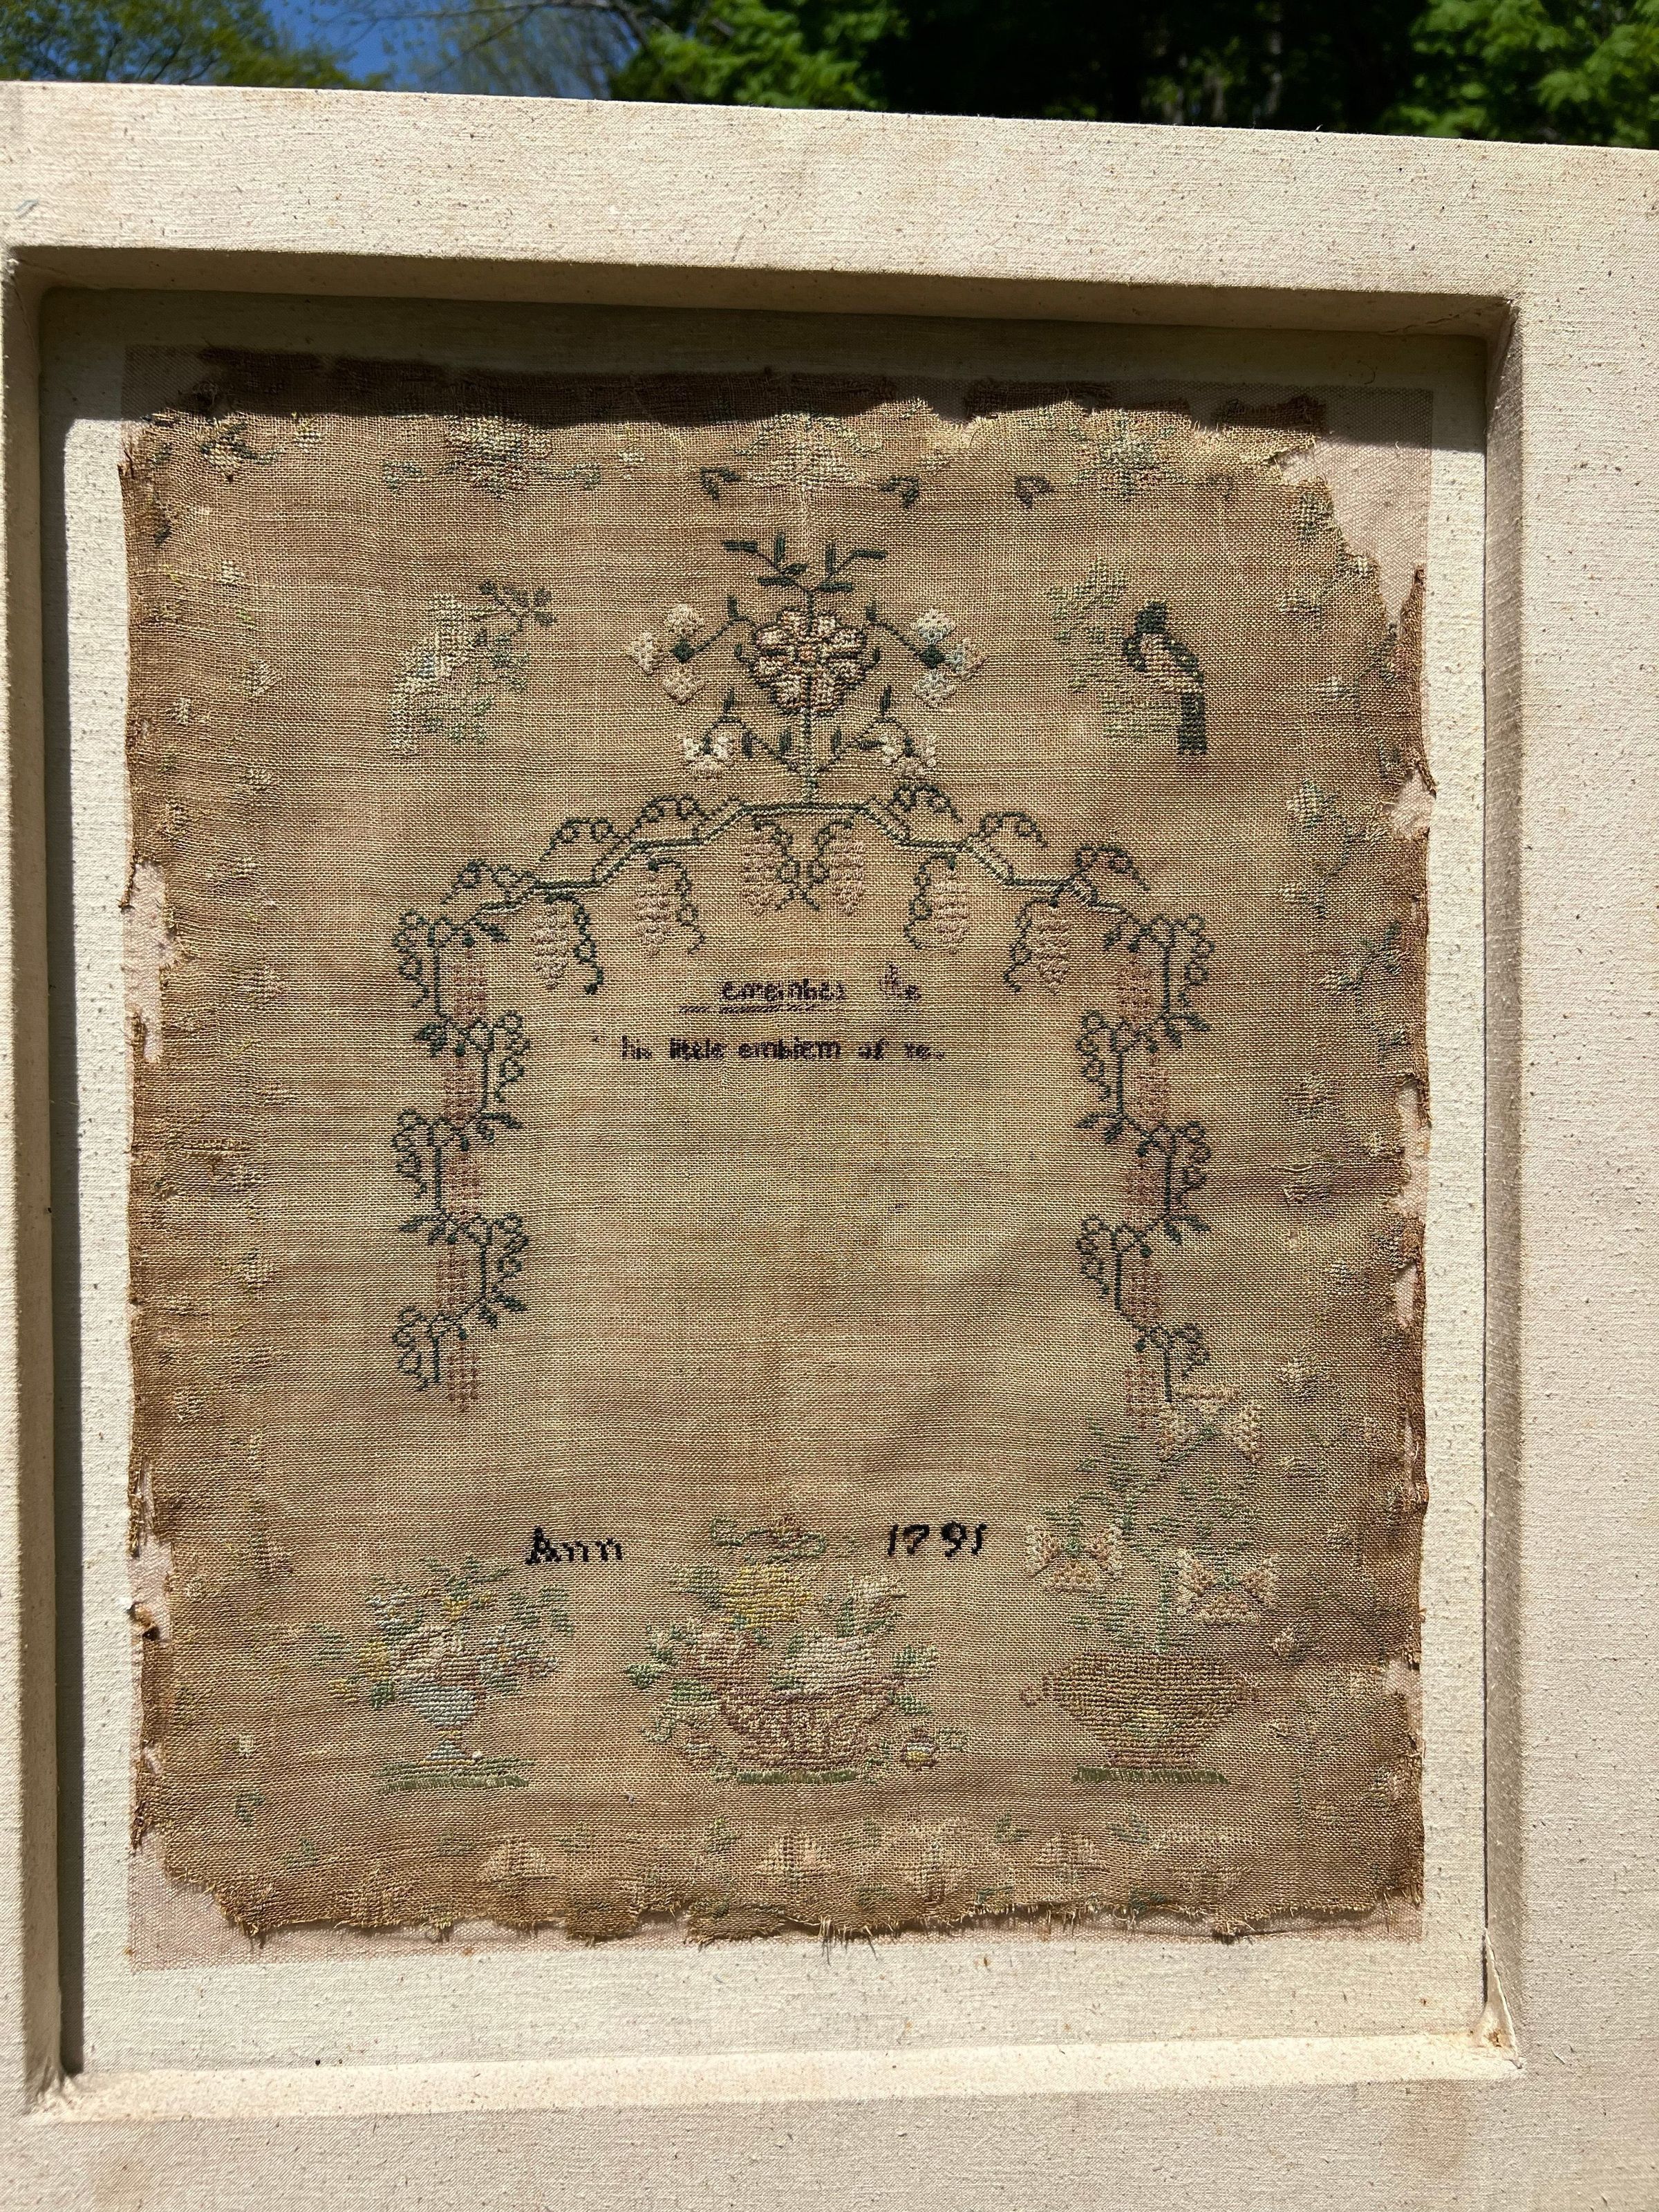 emember
his little emblem of
Ann 1791